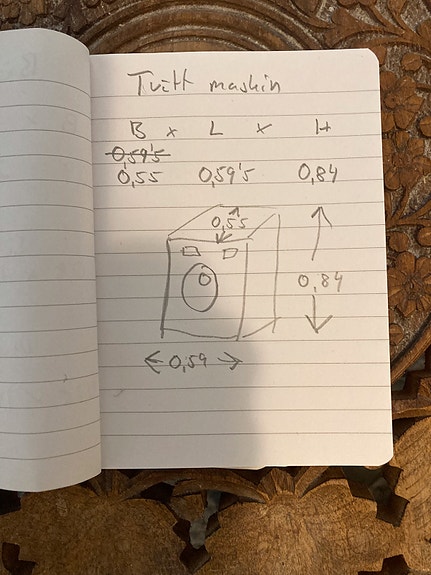 Tvätt maskin
B x L x H
0,59'5
0,55 0,59'5 0,84
0,55
0,84
0,59